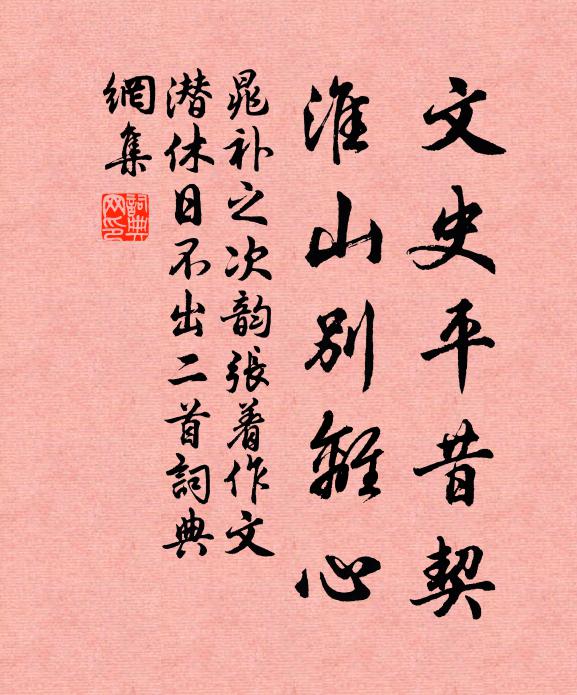 文史平昔契
淮山别離心
晁补之次韵張着作文
潜休日不出二首詞典
網集
詞典網印